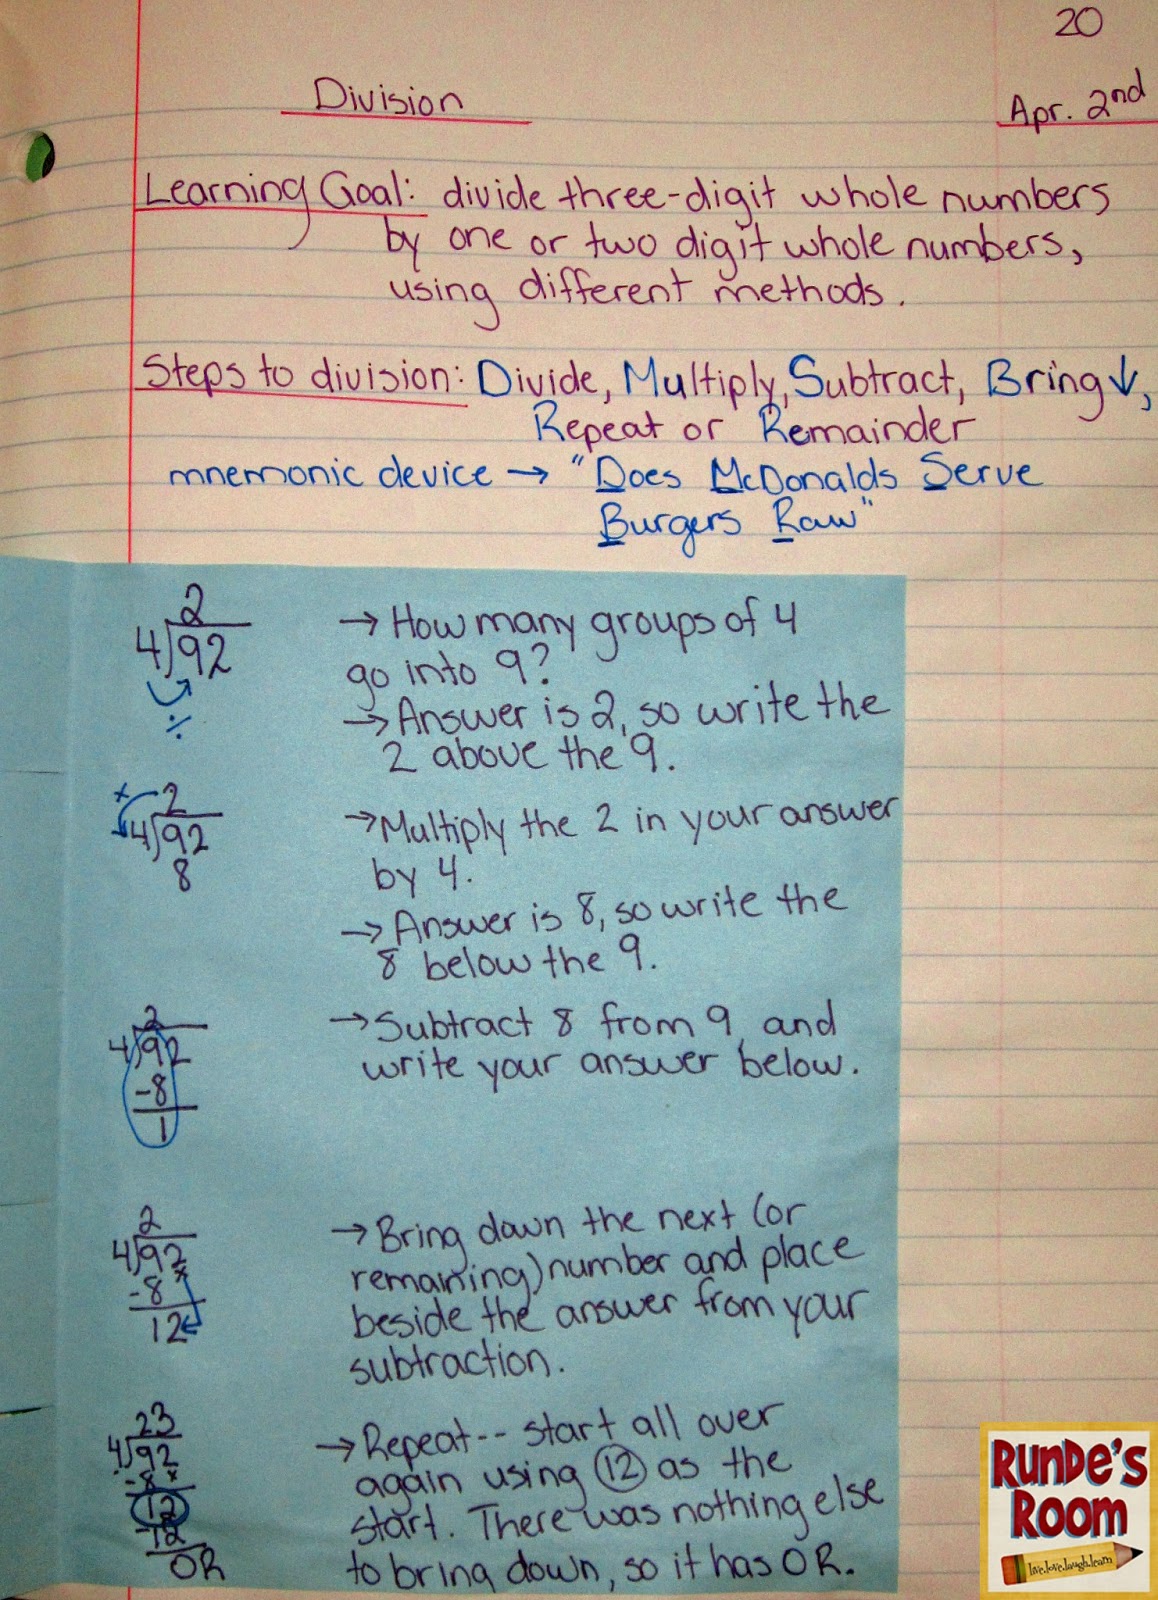 20
Division
Apr. 2nd
Learning Goal: divide three-digit whole numbers
by one or two digit whole numbers,
using different methods.
Steps to division: Divide, Multiply, Subtract, Bring↓,
Repeat or Remainder
mnemonic device → "Does McDonalds Serve
Burgers Raw"
2
4)92
÷
→ How many groups of 4
go into 9?
→ Answer is 2, so write the
2 above the 9.
x 2
4)92
8
→ Multiply the 2 in your answer
by 4.
→ Answer is 8, so write the
8 below the 9.
2
4)92
-8
1
→ Subtract 8 from 9 and
write your answer below.
2
4)92
-8 x
12
→ Bring down the next (or
remaining) number and place
beside the answer from your
subtraction.
23
4)92
-8 x
12
-12
0R
→ Repeat-- start all over
again using 12 as the
start. There was nothing else
to bring down, so it has 0R.
RUNDE'S
ROOM
live.love.laugh.learn